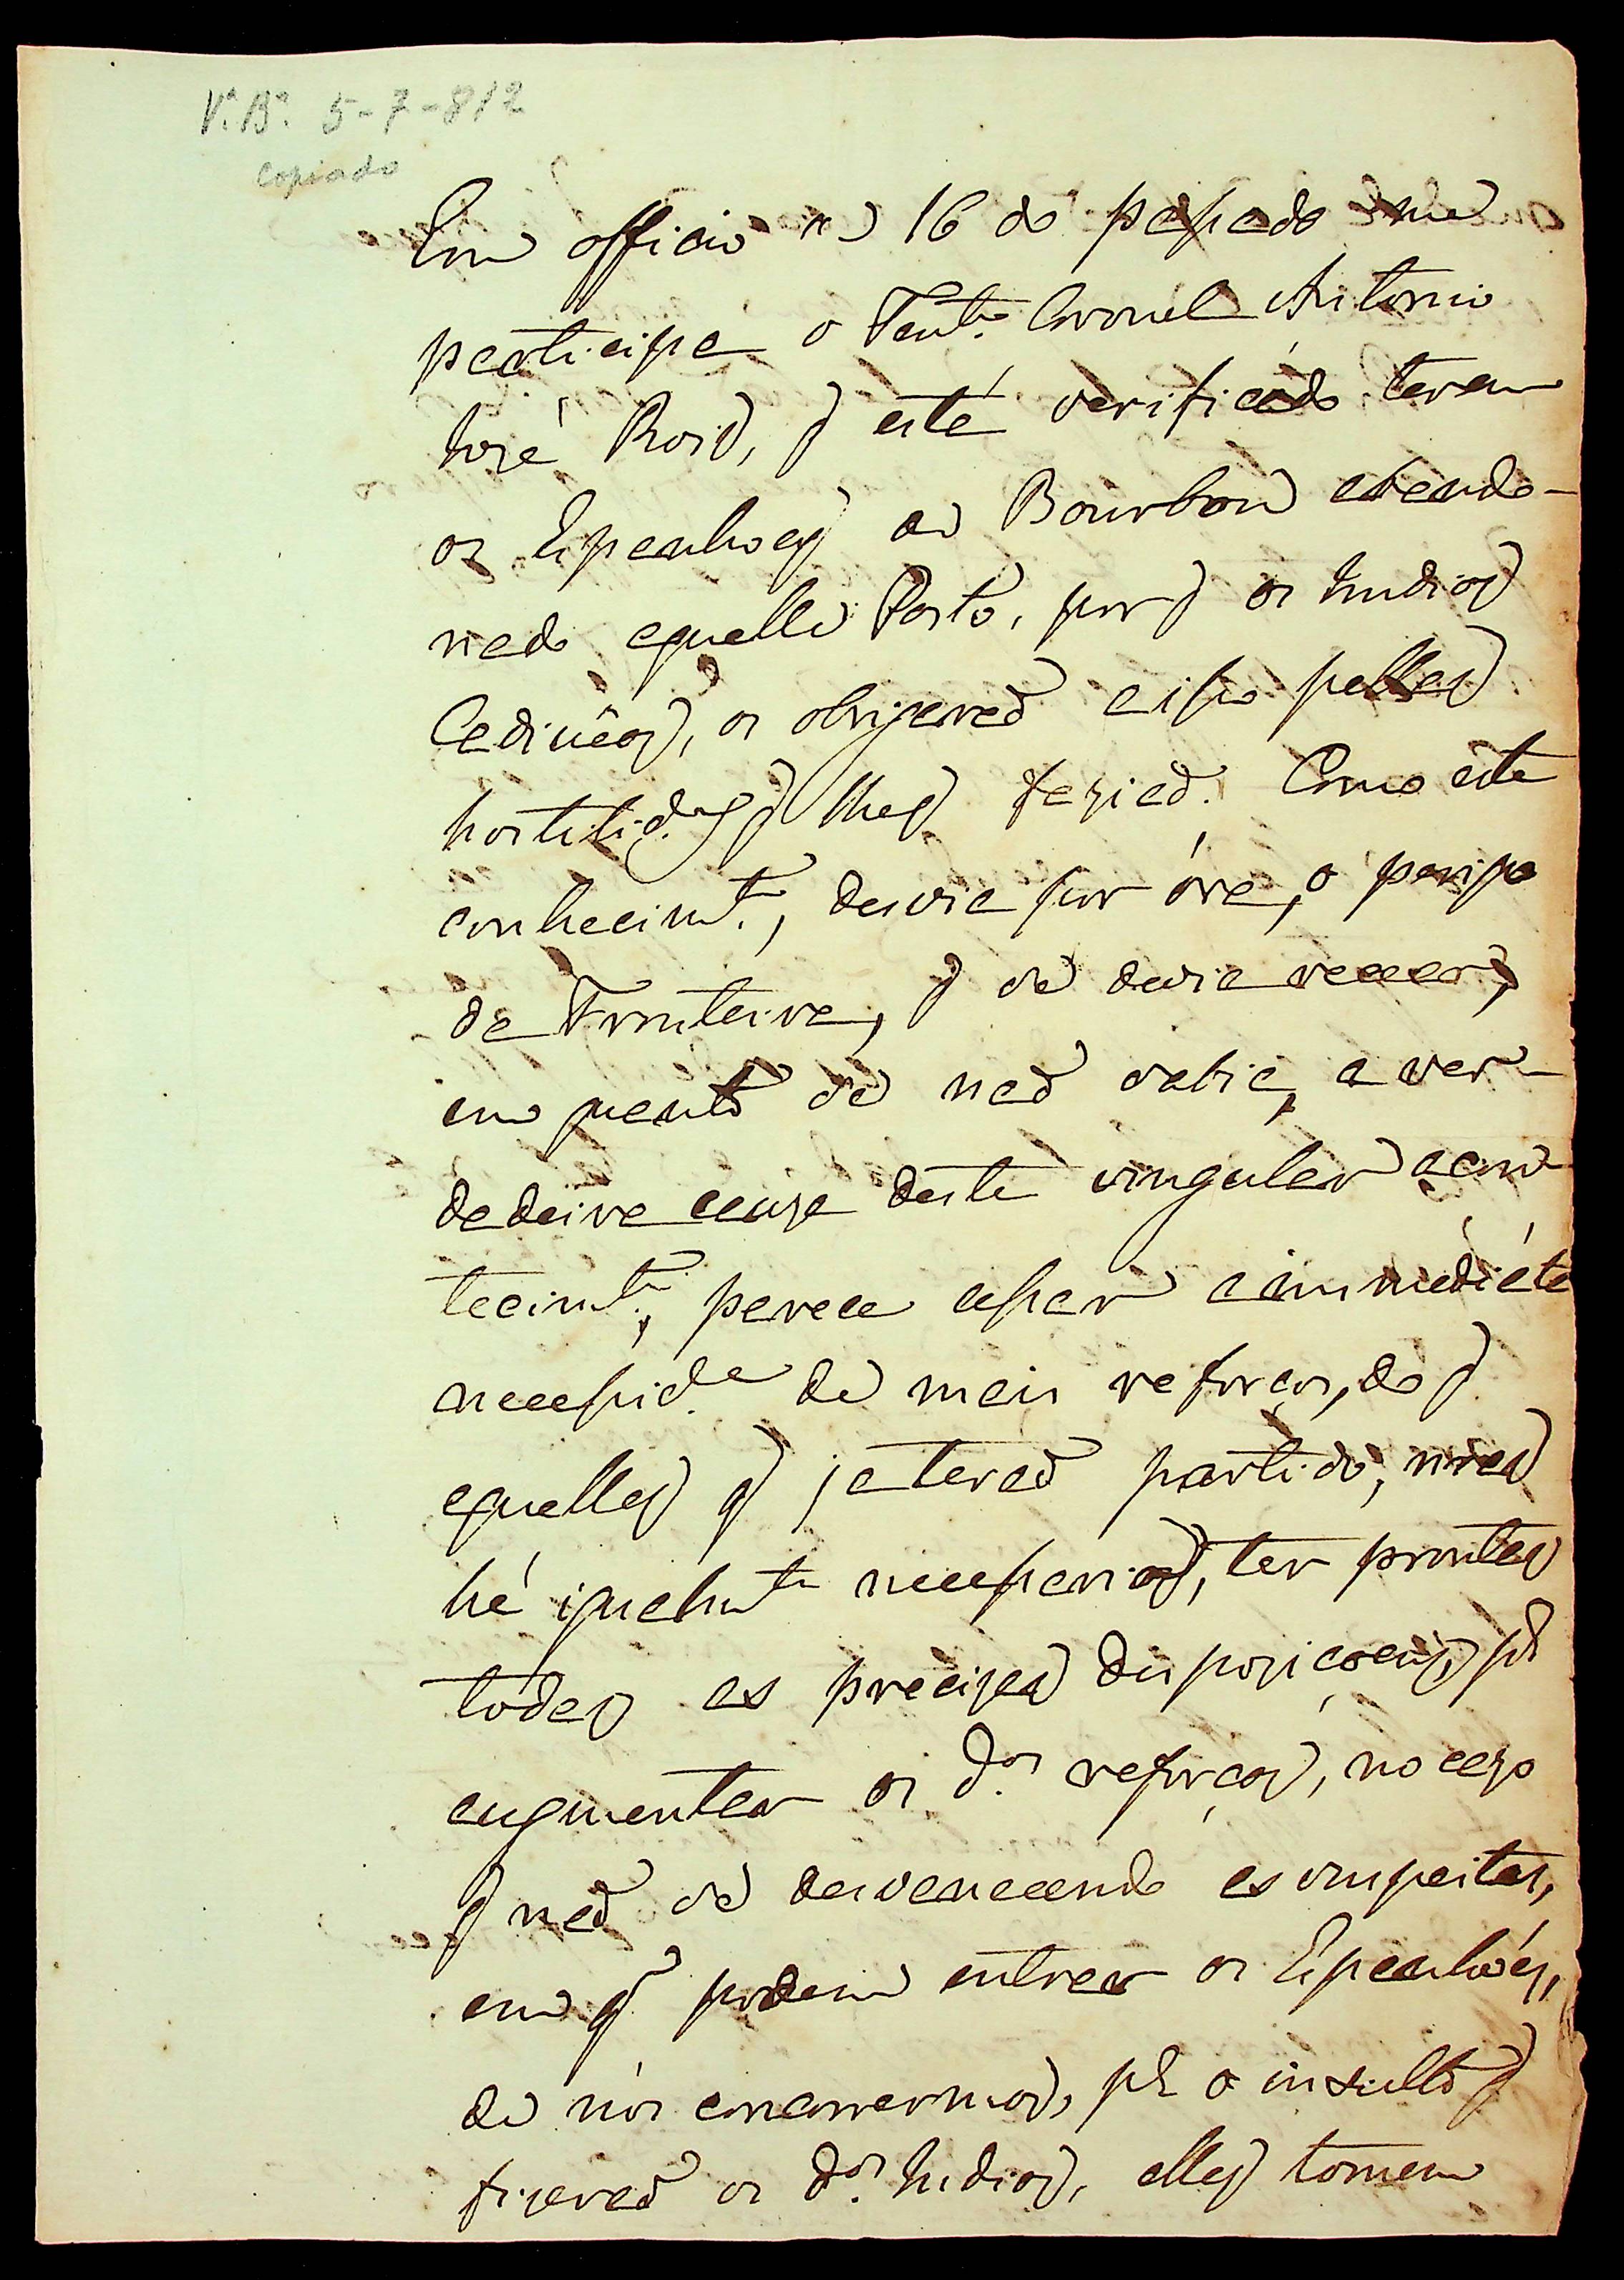 V.ª B.ª 5-7-812
Copiado
Em officio de 16 do passado me
participa o Tent.e Coronel Antonio
José Roiz, q está verificado terem
os Espanhoes de Bourbon abando-
nado aquelle Posto, por q os Indios
Cadinéos, os obrigaraõ a isso pellas
hostilid.es q lhes faziaõ. Como este
conhecimt.o, desvia por óra, o perigo
da Fronteira, q se devia recear,
em quanto se naõ sabia, a ver-
dadeira cauza deste singular acon-
tecimt.o, parece cessar a immediáta
necessid.e de mais reforços, do q
aquelles q já teraõ partido, mas
hé igualmt.e necessario, ter promtas
todas as precizas dispoziçoens, p.ª
augmentar os d.os reforços, no cazo
q naõ se desvanecendo as suspeitas,
em q podem entrar os Espanhóes,
de nós concorrermos, p.ª o insulto q
fizeraõ os d.os Indios, elles tomem